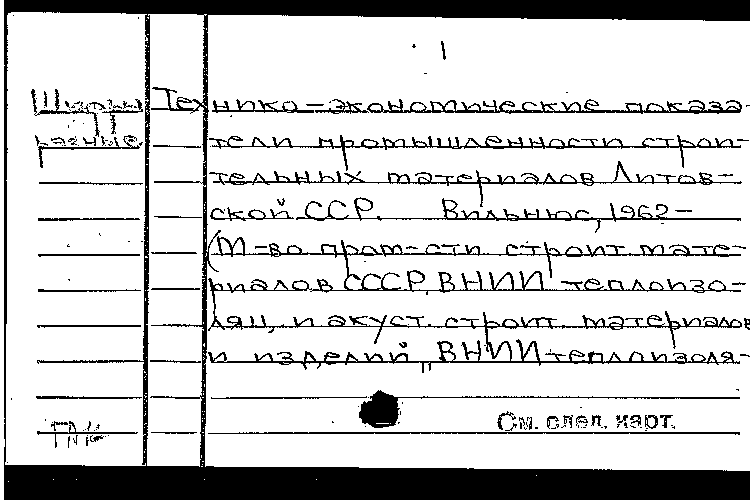 1
Шифры Технико-экономические показа-
разные тели промышленности строи-
тельных материалов Литов-
ской ССР. Вильнюс, 1962-
(М-во пром-сти строит. мате-
риалов СССР, ВНИИ теплоизо-
ляц. и акуст. строит. материалов
и изделий „ВНИИ-теплоизоля-
См. след. карт.